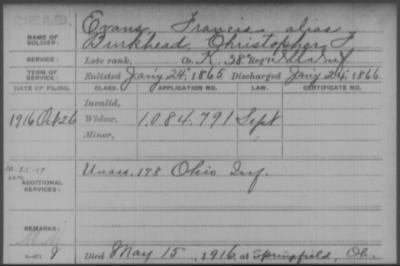 DEAD.
NAME OF SOLDIER: Evans, Francis alias
Burkhead, Christopher
SERVICE: Late rank, Co. K, 38" Reg't Ills Inf
TERM OF SERVICE: Enlisted Jan'y 24, 1865 Discharged Jan'y 24, 1866
DATE OF FILING. CLASS. APPLICATION NO. LAW. CERTIFICATE NO.
Invalid,
1916 Oct 26 Widow, 1,084,791 Sept
Minor,
ADDITIONAL SERVICES: Unass. 178 Ohio Inf.
REMARKS:
Died May 15, 1916, at Springfield, Oh.